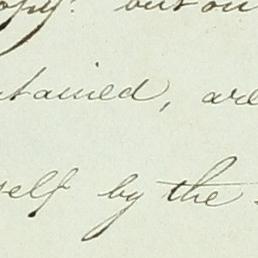 but on
tained, are
self by the